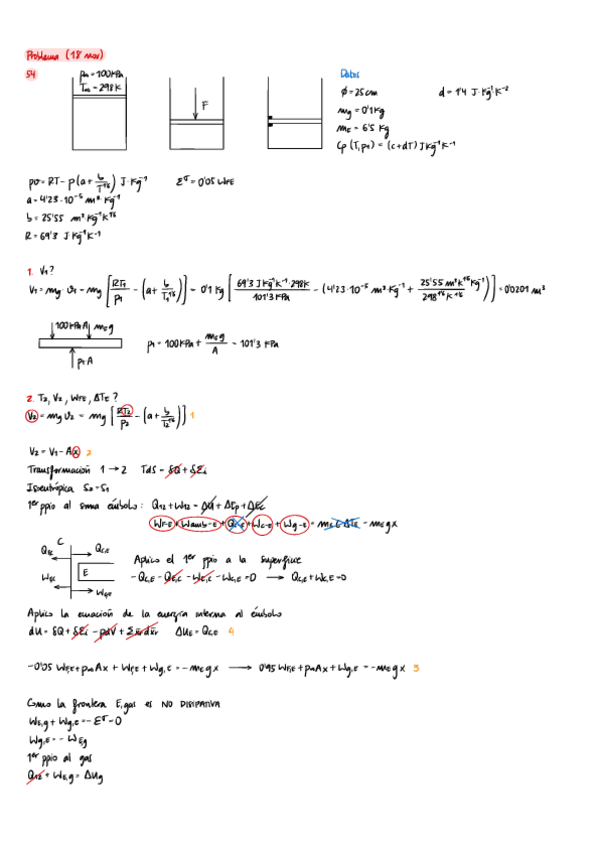 Problema (18 nov)
54
p∞ = 100 kPa
T∞ = 298 K
F
Datos
ϕ = 25 cm
d = 1'4 J·Kg⁻¹K⁻²
mg = 0'1 Kg
mE = 6'5 Kg
Cp (T, p₀) = (c+dT) J Kg⁻¹K⁻¹
pv = RT - p(a + b/T¹⁶) J·Kg⁻¹
Σᵟ = 0'05 WFE
a = 4'23·10⁻⁵ m³ Kg⁻¹
b = 25'55 m³ Kg⁻¹K
R = 69'3 J Kg⁻¹K⁻¹
1. V₁?
V₁ = mg·v₁ = mg [RT₁/p₁ - (a + b/T₁¹⁶)] = 0'1 Kg [69'3 J Kg⁻¹K⁻¹·298K/101'3 KPa - (4'23·10⁻⁵ m³ Kg⁻¹ + 25'55 m³K Kg⁻¹/298 K)] = 0'0201 m³
100 kPa A
mE g
p₁A
p₁ = 100 KPa + mE g/A = 101'3 KPa
2. T₂, V₂, WFE, ΔTE?
V₂ = mg v₂ = mg [RT₂/p₂ - (a + b/T₂¹⁶)] 1
V₂ = V₁ - Ax 2
Transformación 1 → 2 TdS = δQ + δΣi
Isentrópica S₂ = S₁
1er ppio al sma émbolo: Q₁₂ + W₁₂ = ΔU + ΔEp + ΔEc
WF-E + Wamb-E + QC-E + WC-E + Wg-E = mE c ΔTE - mE g x
C
QE,C
QC,E
E
WE,C
WC,E
Aplico el 1er ppio a la superficie
-QC,E - QE,C - WE,C - WC,E = 0 → QC,E + WC,E = 0
Aplico la ecuación de la energía interna al émbolo
dU = δQ + δΣi - pdV + ΣXr dxr ΔUE = QC,E 4
-0'05 WF,E + p∞Ax + WF,E + Wg,E = -mE g x → 0'95 WF,E + p∞Ax + Wg,E = -mE g x 3
Como la frontera E,gas es NO DISIPATIVA
WE,g + Wg,E = -Σᵟ = 0
Wg,E = - WE,g
1er ppio al gas
Q₁₂ + WE,g = ΔUg